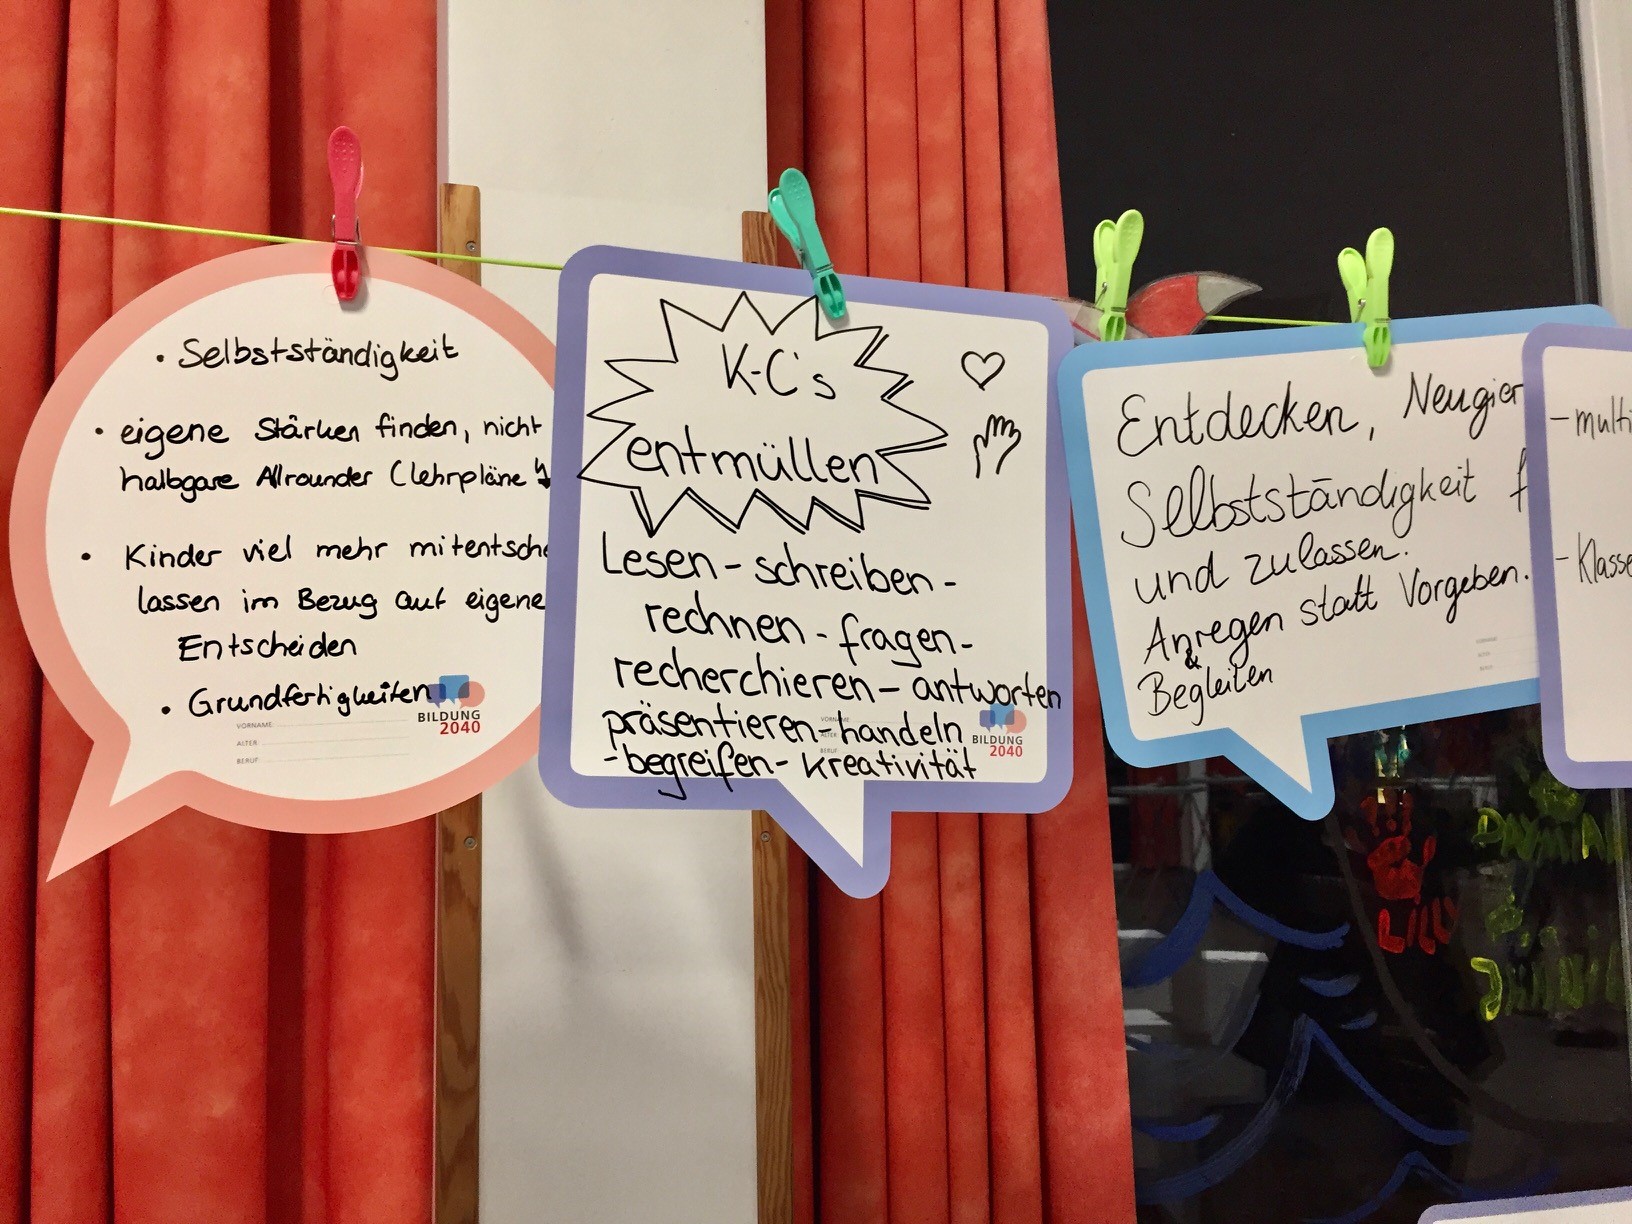 • Selbstständigkeit
• eigene Stärken finden, nicht
halbgare Allrounder (Lehrpläne
• Kinder viel mehr mitentsche
lassen im Bezug auf eigene
Entscheiden
• Grundfertigkeiten
VORNAME:
ALTER:
BERUF:
BILDUNG
2040
K-C's
entmüllen
Lesen - schreiben -
rechnen - fragen -
recherchieren - antworten
präsentieren - handeln
- begreifen - Kreativität
VORNAME
ALTER:
BERUF
BILDUNG
2040
Entdecken, Neugier
Selbstständigkeit f
und zulassen.
Anregen statt Vorgeben.
&
Begleiten
VORNAME
ALTER
BERUF
- multi
- Klasse
LILLY